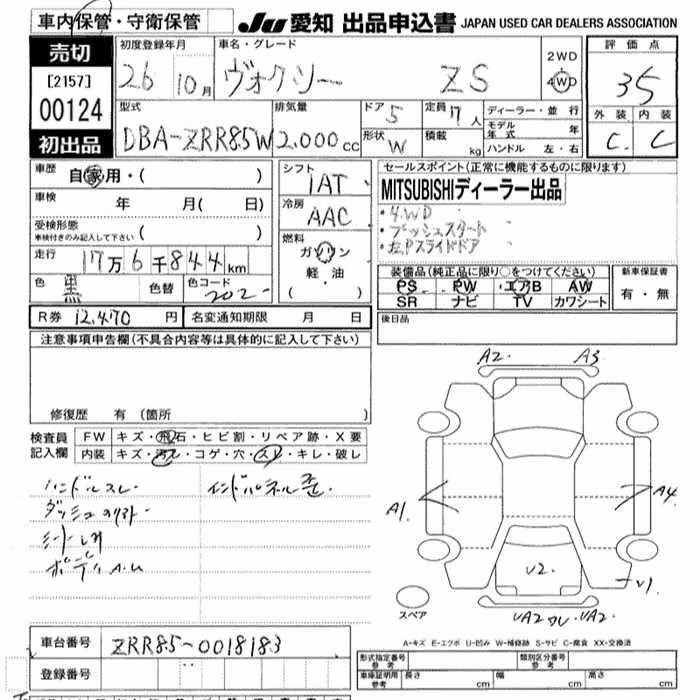 車内保管・守衛保管
JU 愛知 出品申込書 JAPAN USED CAR DEALERS ASSOCIATION
売切
[2157]
00124
初出品
初度登録年月
26 10月
車名・グレード
ヴォクシー ZS
2WD
4WD
評価点
35
外装 内装
C C
型式
DBA-ZRR85W
排気量
2.000cc
ドア
5
定員
人
形状
W
積載
kg
ディーラー・並行
モデル年式 年
ハンドル 左・右
車歴
自家用・( )
車検
年 月( 日)
受検形態
車検付きのみ記入して下さい ( )
走行
17万6千844km
色
黒
色替
色コード
202
シフト
IAT
冷房
AAC
燃料
ガソリン
軽油
( )
セールスポイント(正常に機能するものに限ります)
MITSUBISHIディーラー出品
・4WD
・プッシュスタート
・左Pスライドドア
装備品(純正品に限り○をつけてください)
PS PW エアB AW
SR ナビ TV カワシート
新車保証書
有・無
後日品
R券 12,470円 名変通知期限 月 日
注意事項申告欄(不具合内容等は具体的に記入して下さい)
修復歴 有 (箇所 )
検査員
記入欄
FW キズ・飛石・ヒビ割・リペア跡・X要
内装 キズ・汚レ・コゲ・穴・スレ・キレ・破レ
ハンドルスレ
ダッシュ
シート
ボディ A.U
インドパネル
A2. A3
A1. A4
V2.
V1
UA2 ワレ・UA2.
スペア
A-キズ E-エクボ U-凹み W-補修跡 S-サビ C-腐食 XX-交換済
車台番号 ZRR85-0018183
登録番号
形式指定番号
参考
類別区分番号
参考
車庫証明用
参考
長さ cm 幅 cm 高さ cm